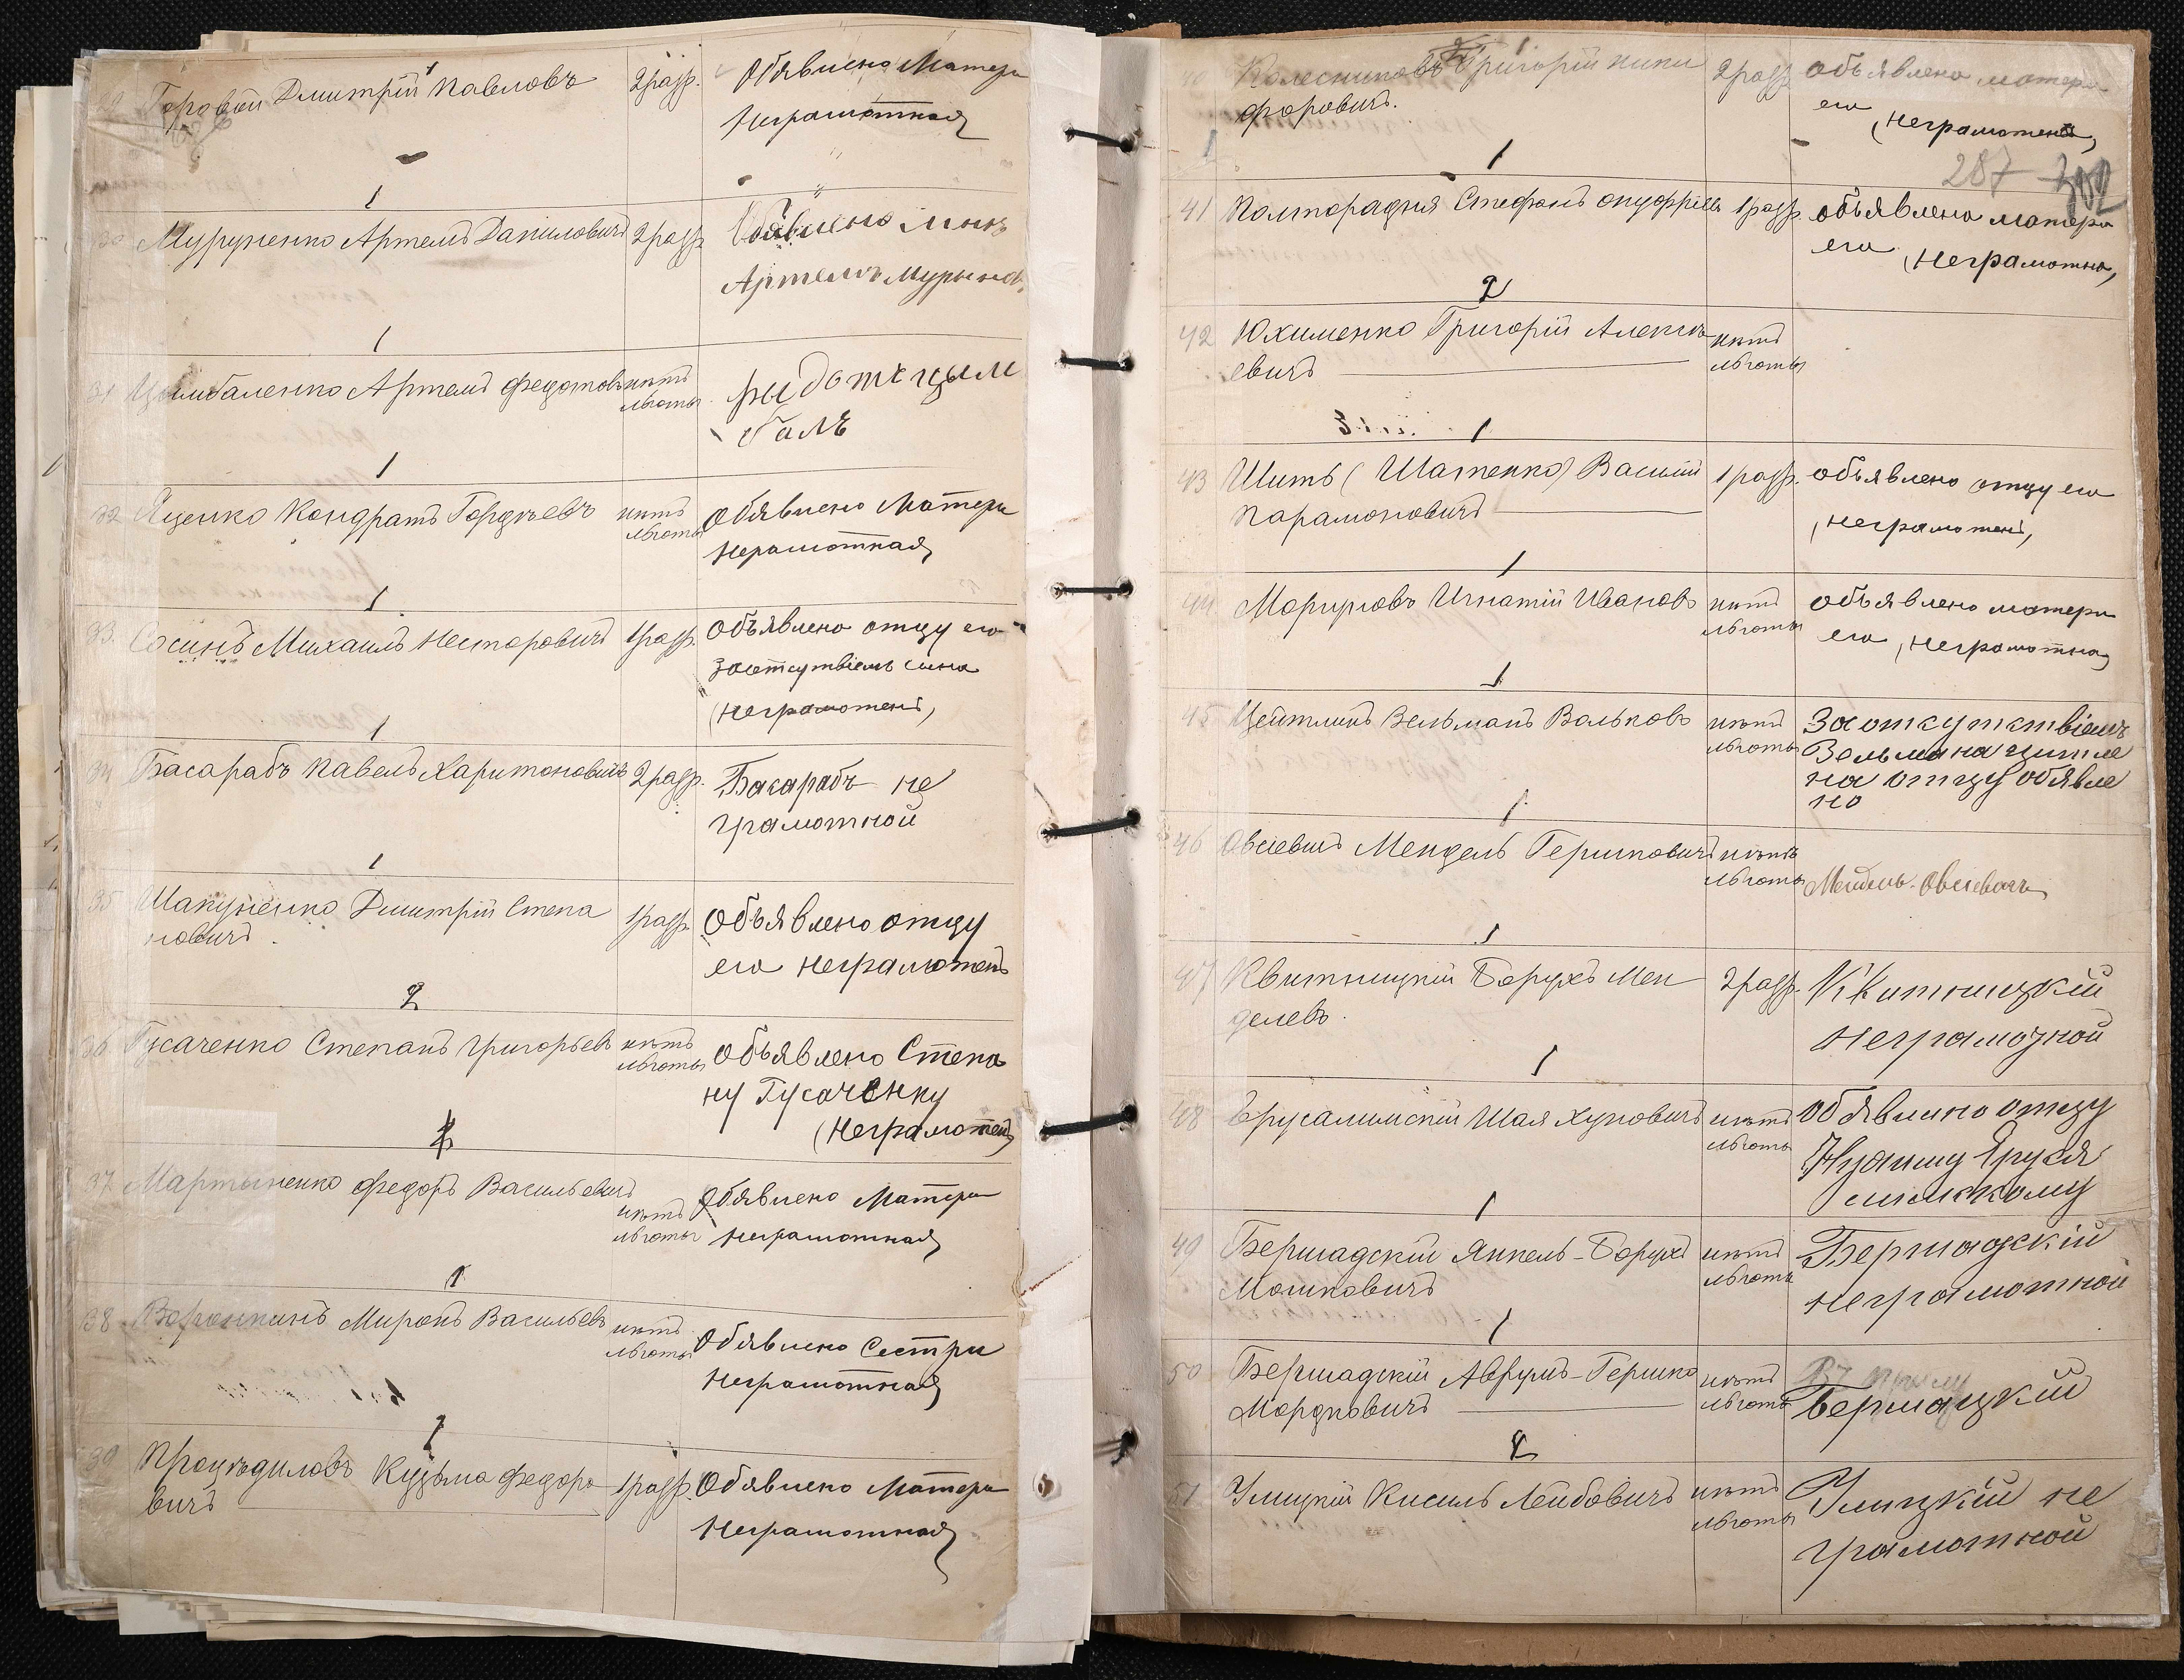 29 Горовой Дмитрій Павловъ 2 разр. Обявлено Матери
Неграмотная
1
30 Муруненко Артемъ Даниловичъ 2 разр. Обявлено Мнѣ
Артемъ Мурынов
1
31 Цимбаленко Артемъ Федотовъ нѣтъ льготы
Цым
балъ
1
32 Яценко Кондратъ Гордѣевъ нѣтъ льготы Обявлено Матери
Неграмотная
1
33 Сосинъ Михаилъ Несторовичъ 1 разр. Объявлено отцу его
за отсутвіемъ сина
(неграмотенъ)
1
34 Басарабъ Павелъ Харитоновичъ 2 разр. Басарабъ не
грамотной
1
35 Шакуненко Дмитрій Степа
новичъ 1 разр. Объявлено отцу
его неграмотенъ
2
36 Гусаченко Степанъ Григорьевъ нѣтъ льготы объявлено Степа
ну Гусаченку
(Неграмотенъ)
1
37 Мартыненко Федоръ Васильевичъ нѣтъ льготы Обявлено Матери
неграмотная
1
38 Воронкинъ Миронъ Васильевъ нѣтъ льготы Обявлено Сестри
Неграмотная
1
39 Процѣдиловъ Кузьма Федоро
вичъ 1 разр. Обявлено Матери
Неграмотная
40 Колесниковъ Григорій Ники
форовичъ. 2 разр. объявлено матери
его (неграмотена)
287 302
1
41 Полторадня Стефанъ Онуфріевъ 1 разр. объявлено матери
его (неграмотна)
2
42 Юхименко Григорій Алексѣ
евичъ нѣтъ льготы
1
43 Шить (Шатенко) Василій
Парамоновичъ 1 разр. объявлено отцу его
(неграмотенъ)
1
44 Морируновъ Игнатій Ивановъ нѣтъ льготы объявлено матери
его (неграмотна)
1
45 Цейтлинъ Зельманъ Вольковъ нѣтъ льготы За откутктвіемъ
Зельмана цитле
на отцу обявле
но
1
46 Овсіевичъ Мендель Гершковичъ нѣтъ льготы Мендель Овсіевичъ
1
47 Квитницкій Борухъ Мен
делевъ. 2 разр. Квитницкій
неграмотной
1
48 Ерусалимскій Шая Хуновичъ нѣтъ льготы Обявлино отцу
1
49 Бершадскій Янкель-Борухъ
Мошковичъ нѣтъ льготы Бершадскій
неграмотной
1
50 Бершадскій Аврумъ-Гершко
Мордковичъ нѣтъ льготы Бершацкій
2
51 Улицкій Кисиль Лейбовичъ нѣтъ льготы Улицкій не
грамотной